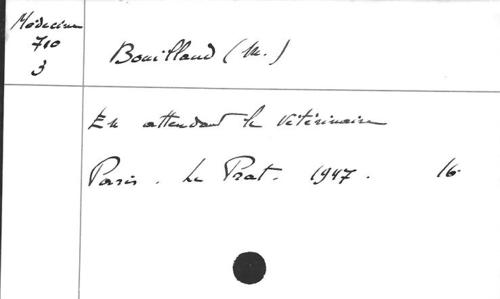 Médecine
710
3
Bouilland (M.)
En attendant le vétérinaire
Paris. Le Prat. 1947. 16